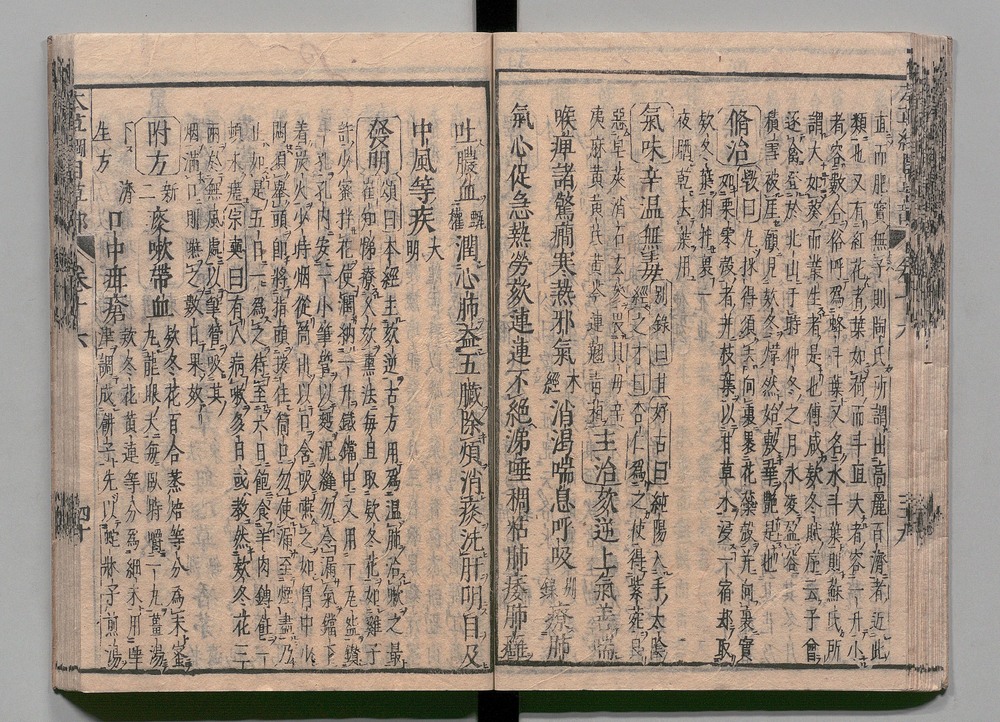 直而肥實無子則陶氏所謂出高麗百濟者近此
類也又有紅花者葉如荷而斗直大者容一升小
者容數合俗呼為蜂斗葉又名水斗葉則蘇氏所
謂大如葵而叢生者是也傅咸欬冬賦序云予曾
逐禽登於北山于時仲冬之月冰凌盈谷
積雪被崖顧見欬冬煒然始敷華艷是也
修治
斅曰凡采得須去向裏裹花蕊殼并向裏實
如粟零殼者并枝葉以甘草水浸一宿却取
欬冬葉相拌裛一
夜晒乾去葉用
氣味辛溫無毒
別錄曰甘好古曰純陽入手太陰
經之才曰杏仁為之使得紫菀良
惡皂莢消石玄參畏貝母辛
夷麻黃黃芪黃芩連翹青葙
主治欬逆上氣善喘
喉痺諸驚癇寒熱邪氣
本經
消渴喘息呼吸
別錄
療肺
氣心促急熱勞欬連連不絕涕唾稠粘肺痿肺癰
吐膿血
甄權
潤心肺益五臟除煩消痰洗肝明目及
中風等疾
大明
發明
頌曰本經主欬逆古方用為溫肺治嗽之最
崔知悌療久欬熏法每旦取欵冬花如雞子
許少蜜拌花使潤納一升鐵鐺中又用一瓦盌鑽
一孔孔內安一小筆管以麪泥縫勿令漏氣鐺下
着炭火少時烟從筒出以口含吸嚥之如胷中少
悶須舉頭即將指頭按住筒口勿使漏至烟盡乃
止如是五日一為之待至六日飽食羊肉餺飥一
頓永瘥宗奭曰有人病嗽多日或教然欵冬花三
兩於無風處以筆管吸其
烟滿口則嚥之數日果效
附方
新二
痰嗽帶血
欵冬花百合蒸焙等分為末蜜
丸龍眼大每臥時嚼一丸薑湯
下
濟生方
口中疳瘡
欵冬花黃連等分為細末用唾
津調成餅子先以蛇牀子煎湯
卷十六
四十